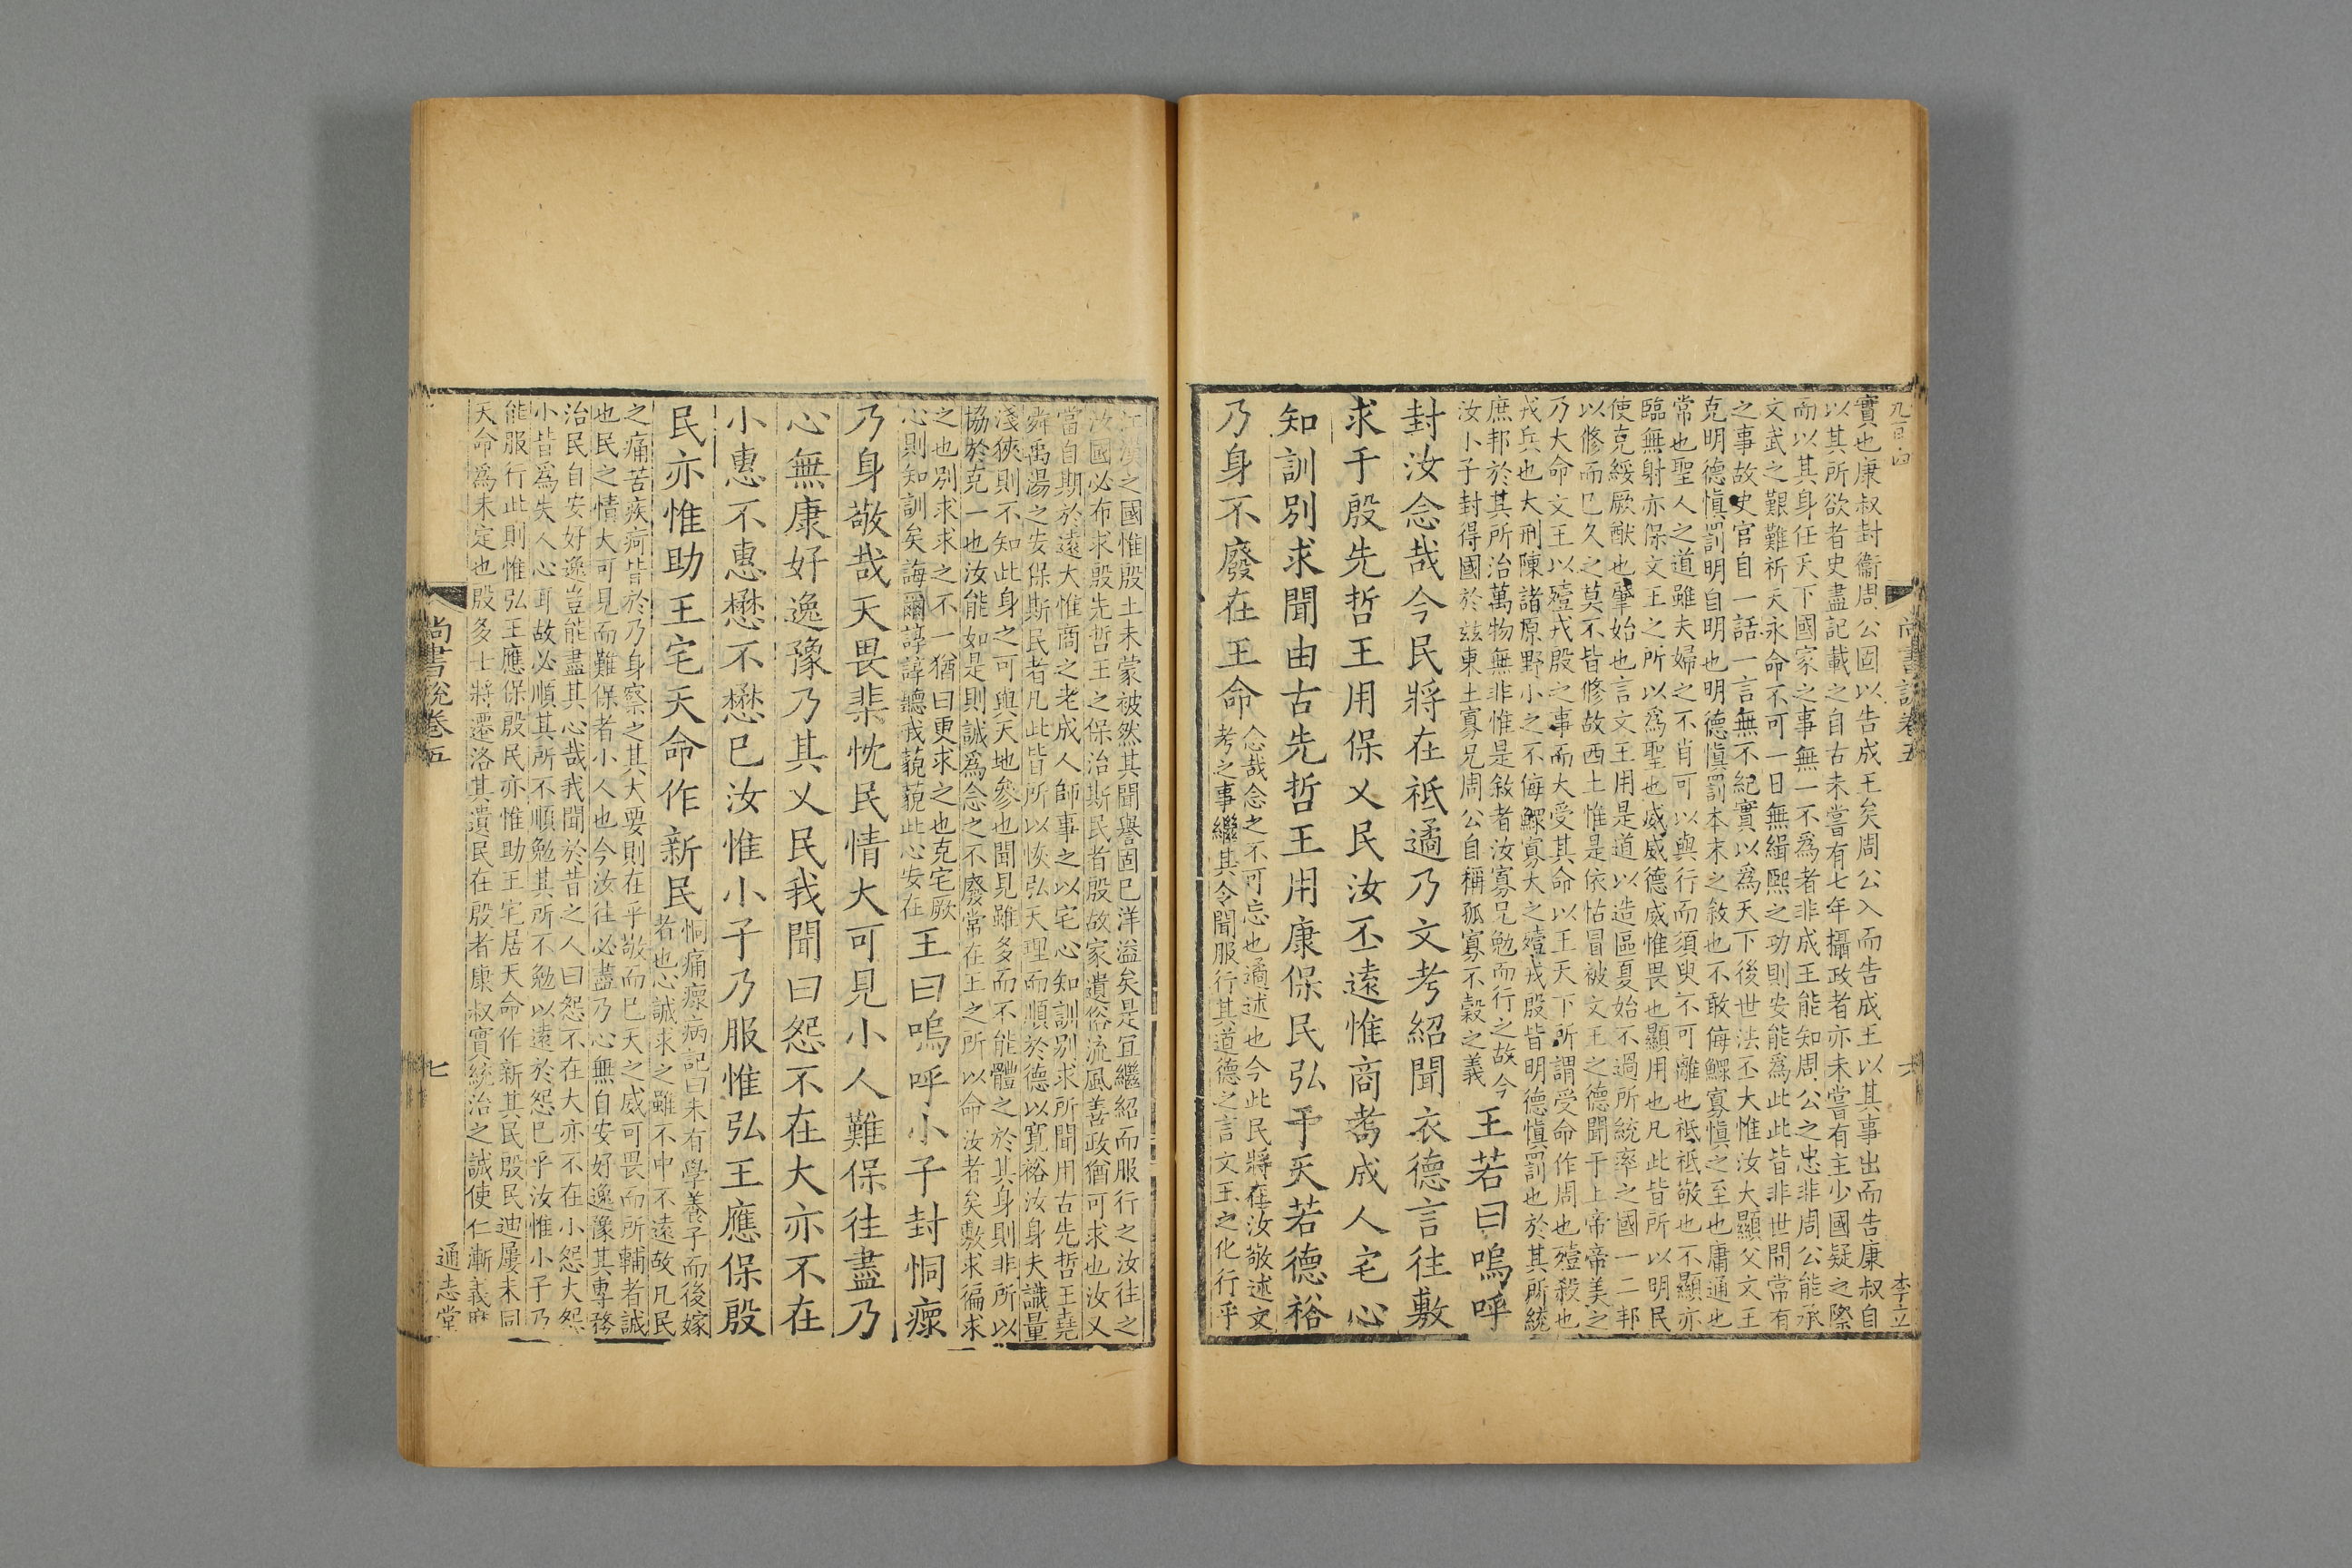 九百四
實也康叔封衞周公固以告成王矣周公入而告成王以其事出而告康叔自
以其所欲者史盡記載之自古未嘗有七年攝政者亦未嘗有主少國疑之際
而以其身任天下國家之事無一不爲者非成王能知周公之忠非周公能承
文武之艱難祈天永命不可一日無緝熙之功則安能爲此此皆非世間常有
之事故史官自一話一言無不紀實以爲天下後世法丕大惟汝大顯父文王
克明德愼罰明自明也明德愼罰本末之敘也不敢侮鰥寡愼之至也庸通也
常也聖人之道雖夫婦之不肖可以與行而須臾不可離也祗祗敬也不顯亦
臨無射亦保文王之所以爲聖也威威德威惟畏也顯用也凡此皆所以明民
使克綏厥猷也肇始也言文王用是道以造區夏始不過所統率之國一二邦
以修而已久之莫不皆修故西土惟是依怙冒被文王之德聞于上帝帝美之
乃大命文王以殪戎殷之事而大受其命以王天下所謂受命作周也殪殺也
戎兵也大刑陳諸原野小之不侮鰥寡大之殪戎殷皆明德愼罰也於其所統
庶邦於其所治萬物無非惟是敘者汝寡兄勉而行之故今
汝小子封得國於兹東土寡兄周公自稱孤寡不穀之義
王若曰嗚呼
封汝念哉今民將在祗遹乃文考紹聞衣德言往敷
求于殷先哲王用保乂民汝丕遠惟商耇成人宅心
知訓別求聞由古先哲王用康保民弘于天若德裕
乃身不廢在王命
念哉念之不可忘也遹述也今此民將在汝敬述文
考之事繼其令聞服行其道德之言文王之化行乎
尚書說卷五
六
李立
江漢之國惟殷土未蒙被然其聞譽固已洋溢矣是宜繼紹而服行之汝往之
汝國必布求殷先哲王之保治斯民者殷故家遺俗流風善政猶可求也汝又
當自期於遠大惟商之老成人師事之以宅心知訓別求所聞用古先哲王堯
舜禹湯之安保斯民者凡此皆所以恢弘天理而順於德以寬裕汝身夫識量
淺狹則不知此身之可與天地參也聞見雖多而不能體之於其身則非所以
協於克一也汝能如是則誠爲念之不廢常在王之所以命汝者矣敷求徧求
之也別求求之不一猶曰更求之也克宅厥
心則知訓矣誨爾諄諄聽我藐藐此心安在
王曰嗚呼小子封恫瘝
乃身敬哉天畏棐忱民情大可見小人難保往盡乃
心無康好逸豫乃其乂民我聞曰怨不在大亦不在
小惠不惠懋不懋已汝惟小子乃服惟弘王應保殷
民亦惟助王宅天命作新民
恫痛瘝病記曰未有學養子而後嫁
者也心誠求之雖不中不遠故凡民
之痛苦疾疴皆於乃身察之其大要則在乎敬而已天之威可畏而所輔者誠
也民之情大可見而難保者小人也今汝往必盡乃心無自安好逸豫其專務
治民自安好逸豈能盡其心哉我聞於昔之人曰怨不在大亦不在小怨大怨
小皆爲失人心耳故必順其所不順勉其所不勉以遠於怨已乎汝惟小子乃
能服行此則惟弘王應保殷民亦惟助王宅居天命作新其民殷民迪屢未同
天命爲未定也殷多士將遷洛其遺民在殷者康叔實統治之誠使仁漸義摩
尚書說卷五
七
通志堂